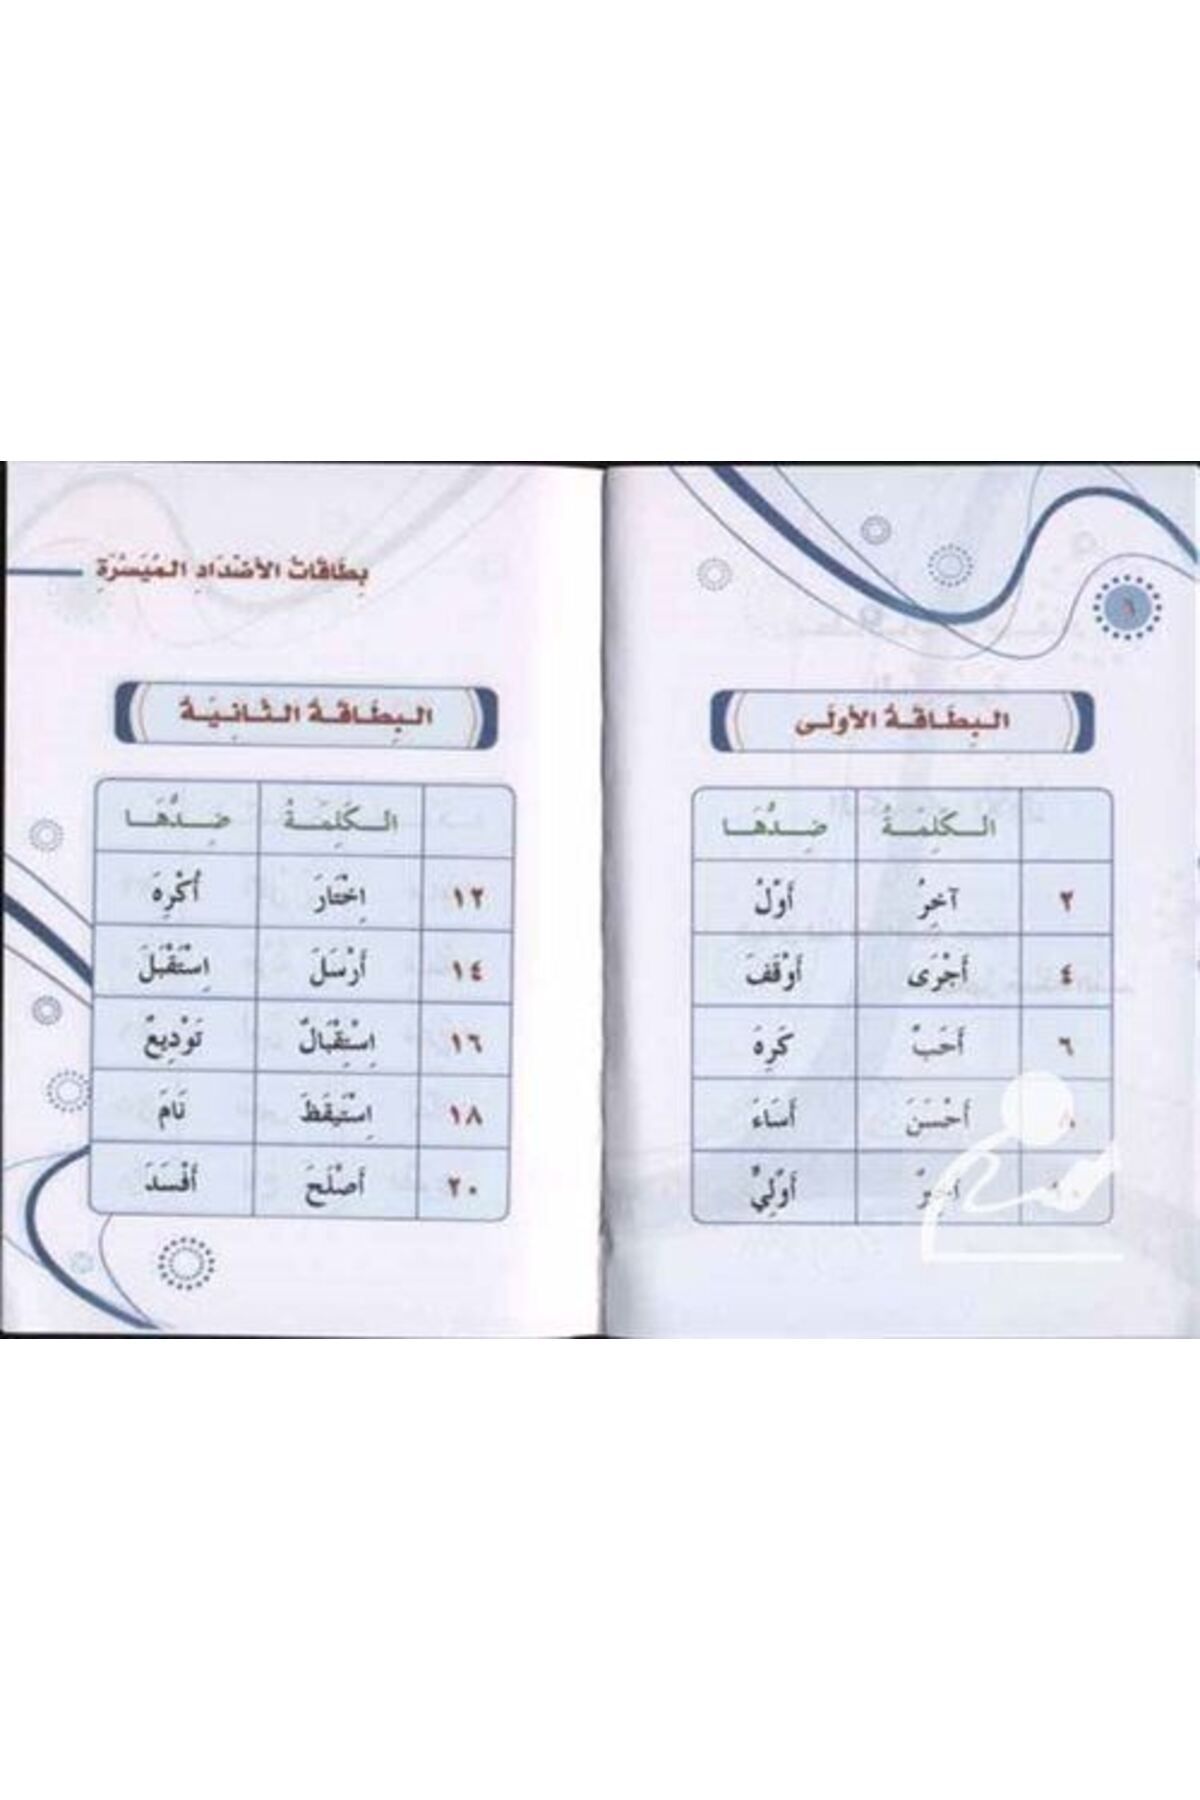 ٦
البِطَاقَةُ الأُولَى
الكَلِمَةُ ضِدُّهَا
٢ آخِرُ أَوَّلُ
٤ أَجْرَى أَوْقَفَ
٦ أَحَبَّ كَرِهَ
أَحْسَنَ أَسَاءَ
أَوَّلِيٌّ
بِطَاقَاتُ الأَضْدَادِ المُيَسَّرَةِ
البِطَاقَةُ الثَّانِيَةُ
الكَلِمَةُ ضِدُّهَا
١٢ اِخْتَارَ أُكْرِهَ
١٤ أَرْسَلَ اِسْتَقْبَلَ
١٦ اِسْتِقْبَالٌ تَوْدِيعٌ
١٨ اِسْتَيْقَظَ نَامَ
٢٠ أَصْلَحَ أَفْسَدَ